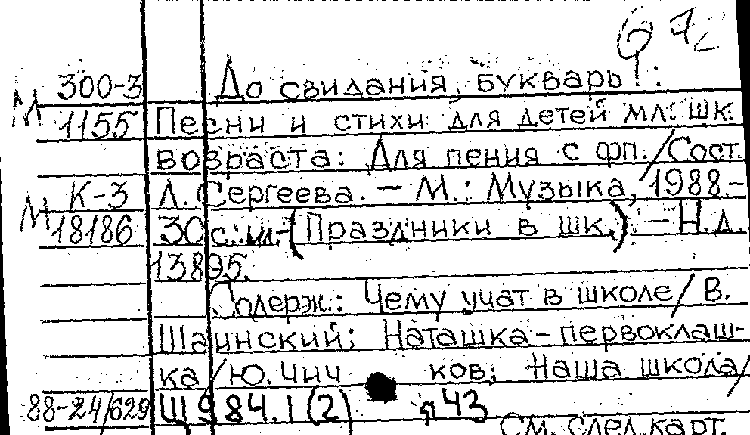 672
М 300-3 До свидания, букварь! :
1155 Песни и стихи для детей мл. шк.
возраста: Для пения с фп./Сост.
М К-3 Л. Сергеева. – М.: Музыка, 1988.–
18186 30с.:ил.–(Праздники в шк.). – Н.д.
13895.
Содерж.: Чему учат в школе/ В.
Шаинский; Наташка-первоклаш-
ка/Ю. Чичков; Наша школа/
88-24/629 Щ984.1(2) я43
См. след. карт.